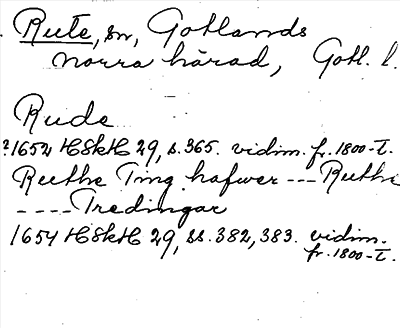 Rute, sn, Gotlands
norra härad, Gotl. l.
Rude
?1652 HSkH 29, s. 365. vidim. fr. 1800-t.
Ruthe Ting hafwer --- Ruthe
---- Tredingar
1654 HSkH 29, ss. 382, 383. vidim.
fr. 1800-t.